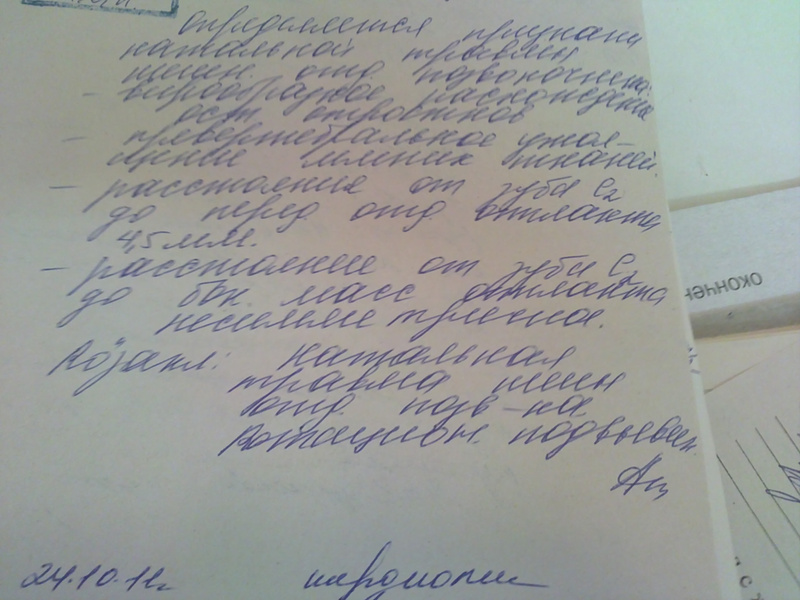 определяется признаки
натальной травмы
шейн. отд. позвоночника:
- веерообразное расхождение
ост. отростков
- превертебральное утол-
щение мягких тканей.
- расстояние от зуба C2
до перед отд атланта
4,5 мм.
- расстояние от зуба C2
до бок. масс атланта
несимметрично.
R закл: натальная
травма шейн
отд. позв-ка
Ротацион. подвывих.
24.10.11г.
окончен